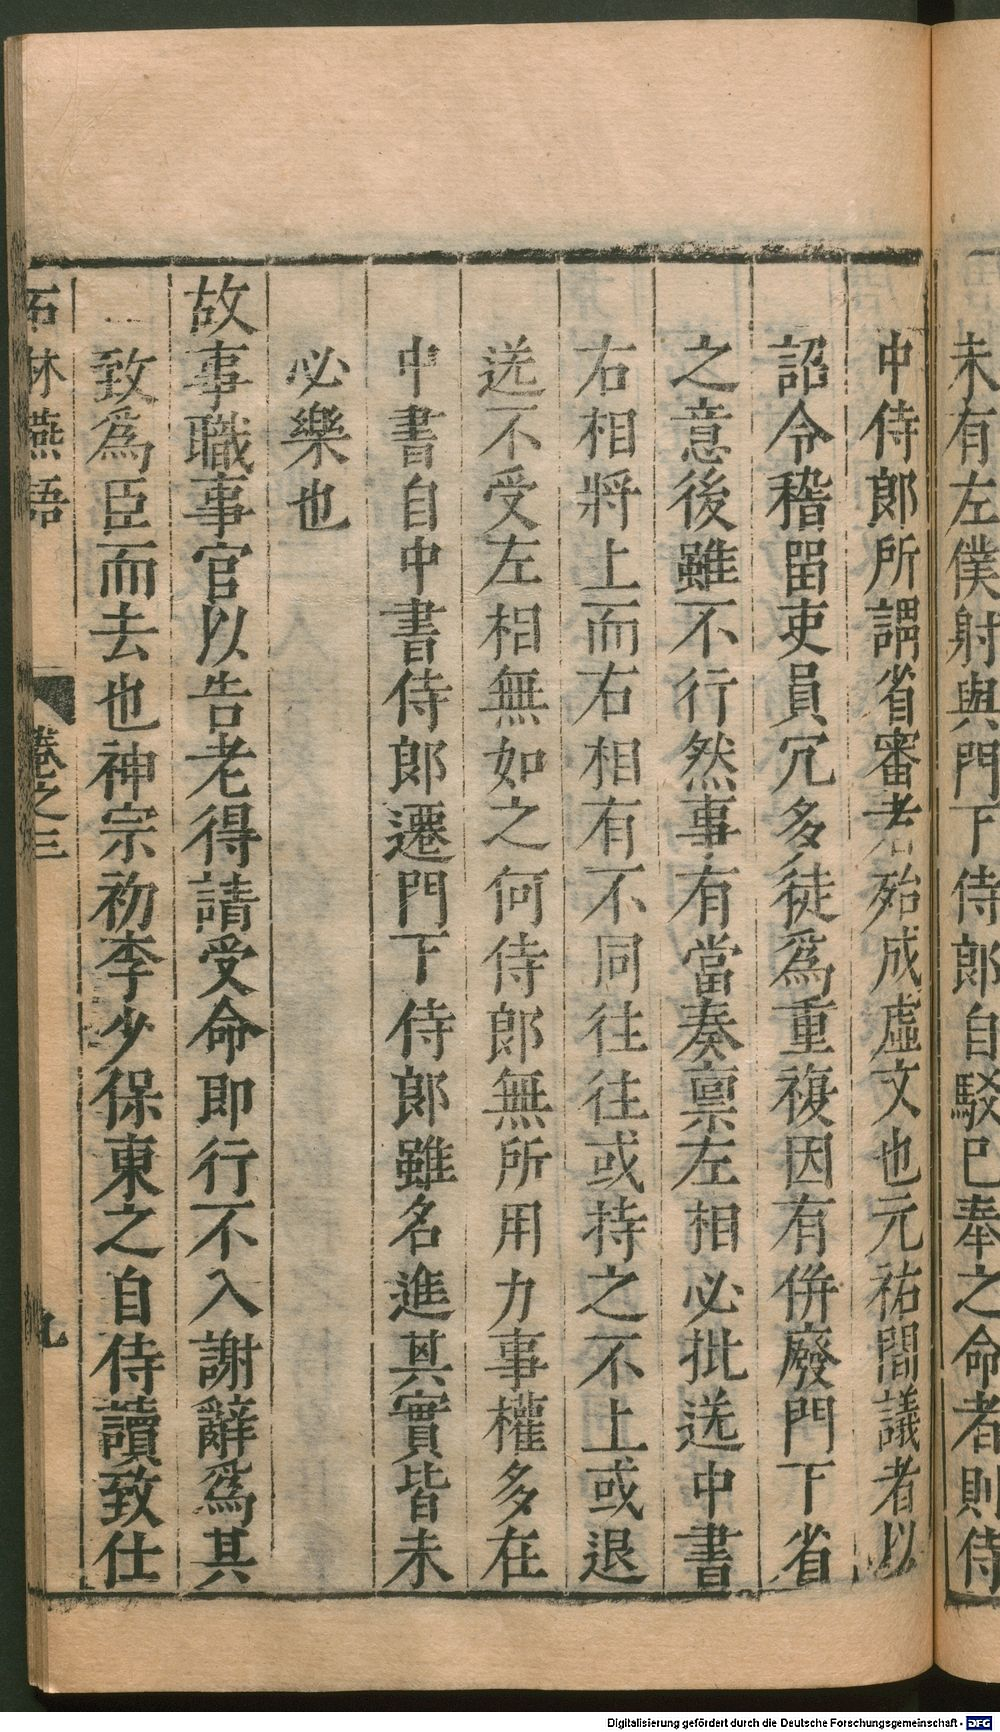 未有左僕射與門下侍郎自駁已奉之命者則侍
中侍郎所謂省審者殆成虛文也元祐間議者以
詔令稽留吏員冗多徒為重複因有併廢門下省
之意後雖不行然事有當奏稟左相必批送中書
右相將上而右相有不同往往或持之不上或退
送不受左相無如之何侍郎無所用力事權多在
中書自中書侍郎遷門下侍郎雖名進其實皆未
必樂也
故事職事官以告老得請受命即行不入謝辭為其
致為臣而去也神宗初李少保東之自侍讀致仕
石林燕語 卷之三 九
Digitalisierung gefördert durch die Deutsche Forschungsgemeinschaft - DFG